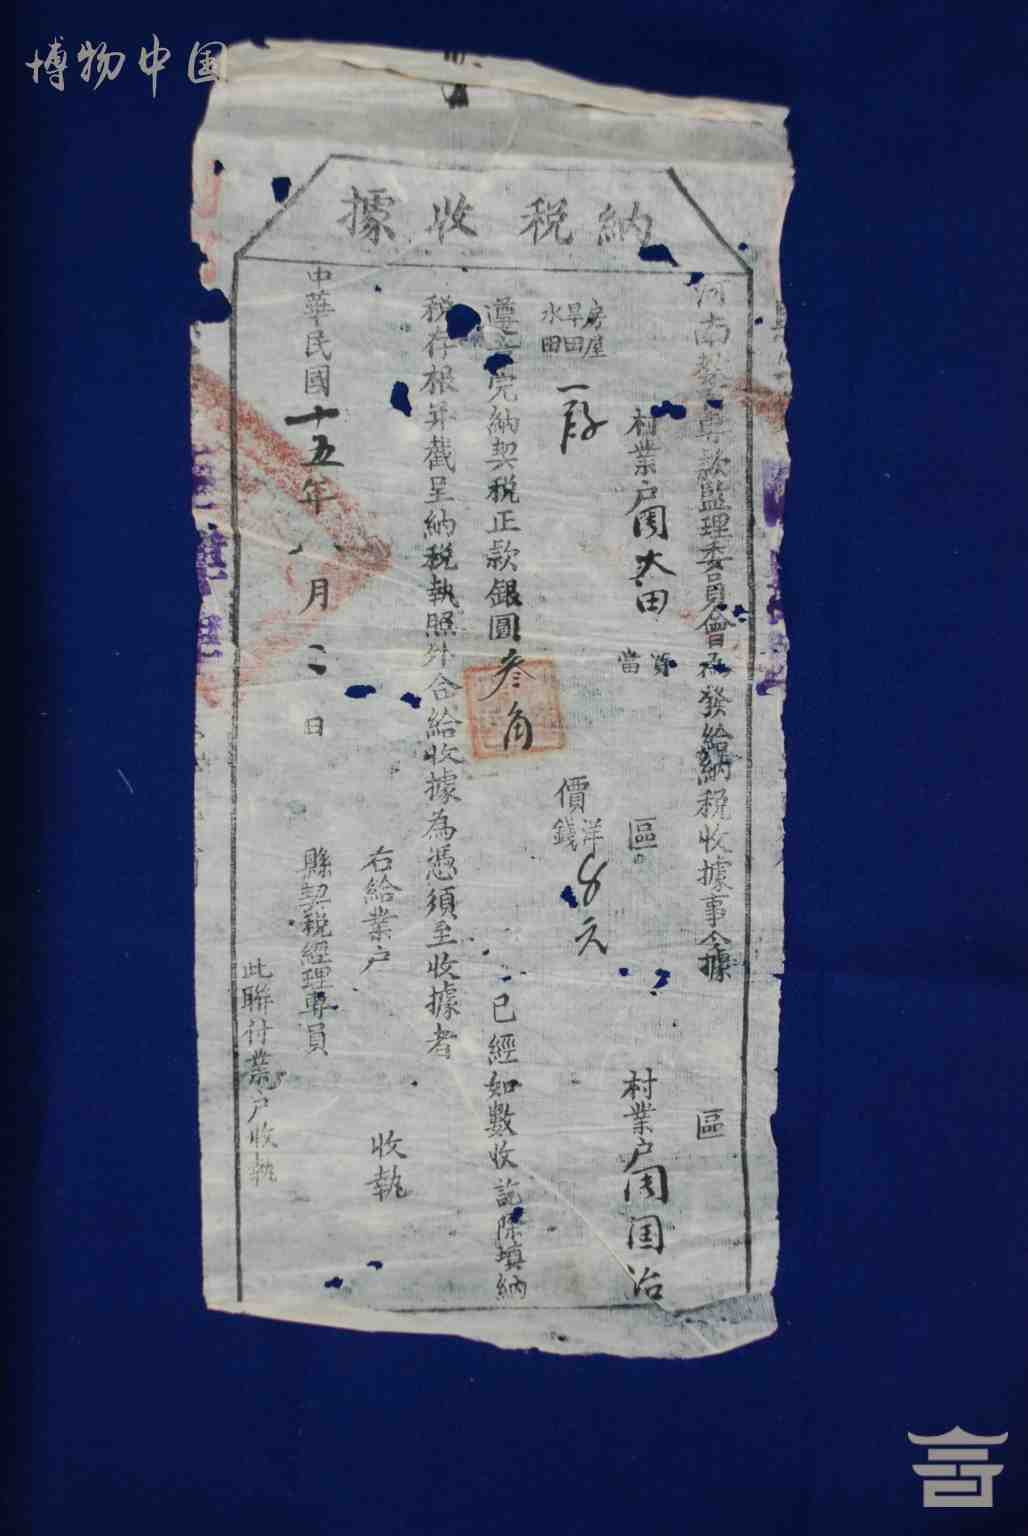 博物中国
納稅收據
河南教育專款監理委員會為發給納稅收據事今據 區
村業戶周大田 當買 區 村業戶周国治
房屋
旱田
水田
一段 價洋錢8元
遵章完納契稅正款銀圓叁角 已經如數收訖除填納
稅存根并截呈納稅執照外合給收據為憑須至收據者
右給業戶 收執
中華民國十五年八月二日 縣契稅經理專員
此聯付業戶收執